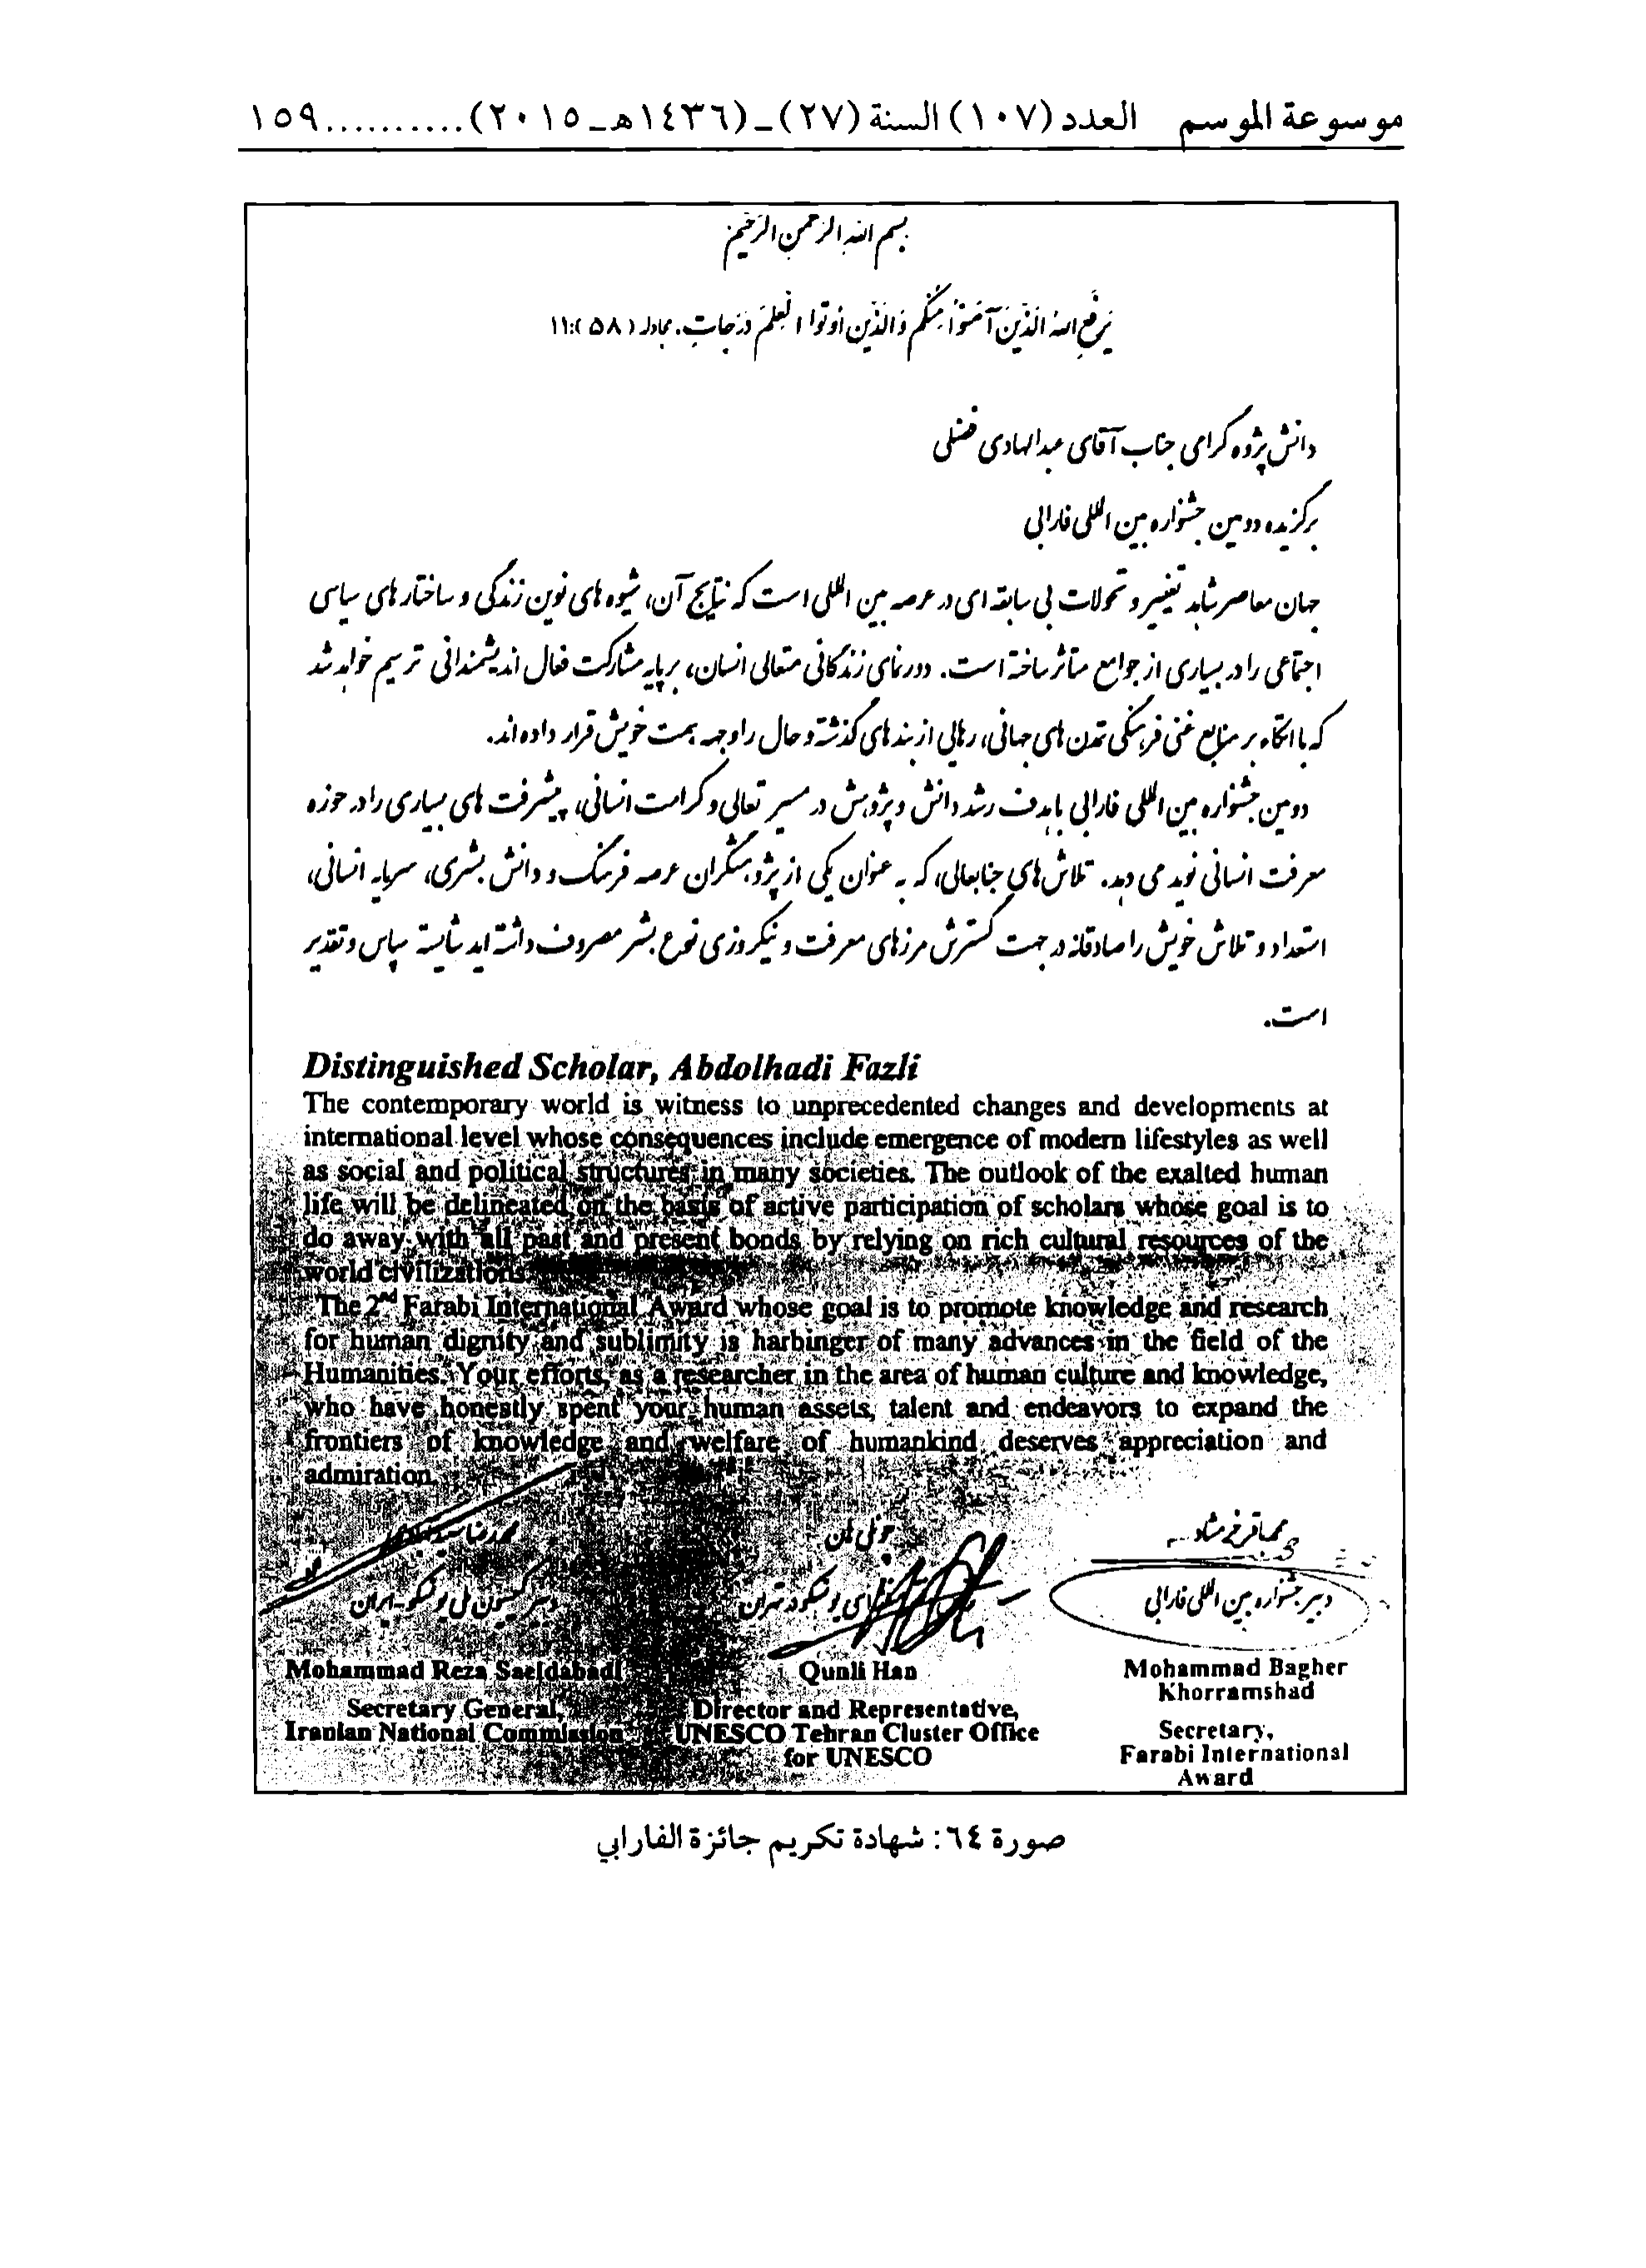 موسوعة الموسم العدد (١٠٧) السنة (٢٧)ـ(١٤٣٦هـ-٢٠١٥)..........١٥٩
بسم الله الرحمن الرحیم
یَرفَعِ اللهُ الَّذینَ آمَنُوا مِنکُم وَالَّذینَ اُوتُوا العِلمَ دَرَجاتٍ. مجادله (٥٨):١١
دانش پژوه گرامی جناب آقای عبدالهادی فضلی
برگزیده دومین جشنواره بین المللی فارابی
جهان معاصر شاهد تغییر و تحولات بی سابقه ای در عرصه بین المللی است که نتایج آن، شیوه های نوین زندگی و ساختارهای سیاسی
اجتماعی را در بسیاری از جوامع متأثر ساخته است. دورنمای زندگانی متعالی انسان، بر پایه مشارکت فعال اندیشمندانی ترسیم خواهد شد
که با اتکاء بر منابع غنی فرهنگی تمدن های جهانی، رهایی از بندهای گذشته و حال را وجهه همت خویش قرار داده اند.
دومین جشنواره بین المللی فارابی با هدف رشد دانش و پژوهش در مسیر تعالی و کرامت انسانی، پیشرفت های بسیاری را در حوزه
معرفت انسانی نوید می دهد. تلاش های جنابعالی، که به عنوان یکی از پژوهشگران عرصه فرهنگ و دانش بشری، سرمایه انسانی،
استعداد و تلاش خویش را صادقانه در جهت گسترش مرزهای معرفت و نیکروزی نوع بشر مصروف داشته اید شایسته سپاس و تقدیر
است.
Distinguished Scholar, Abdolhadi Fazli
The contemporary world is witness to unprecedented changes and developments at
international level whose consequences include emergence of modern lifestyles as well
as social and political structures in many societies. The outlook of the exalted human
life will be delineated on the basis of active participation of scholars whose goal is to
do away with all past and present bonds by relying on rich cultural resources of the
world civilizations.
The 2nd Farabi International Award whose goal is to promote knowledge and research
for human dignity and sublimity is harbinger of many advances in the field of the
Humanities. Your efforts, as a researcher in the area of human culture and knowledge,
who have honestly spent your human assets, talent and endeavors to expand the
frontiers of knowledge and welfare of humankind deserves appreciation and
admiration.
محمدباقر خرمشاد
دبیر جشنواره بین المللی فارابی
چونلی هان
یونسکو در تهران
محمدرضا
دبیر کمیسیون ملی یونسکو-ایران
Mohammad Reza Saeidabadi
Secretary General,
Iranian National Commission
Qunli Han
Director and Representative,
UNESCO Tehran Cluster Office
for UNESCO
Mohammad Bagher
Khorramshad
Secretary,
Farabi International
Award
صورة ٦٤: شهادة تكريم جائزة الفارابي